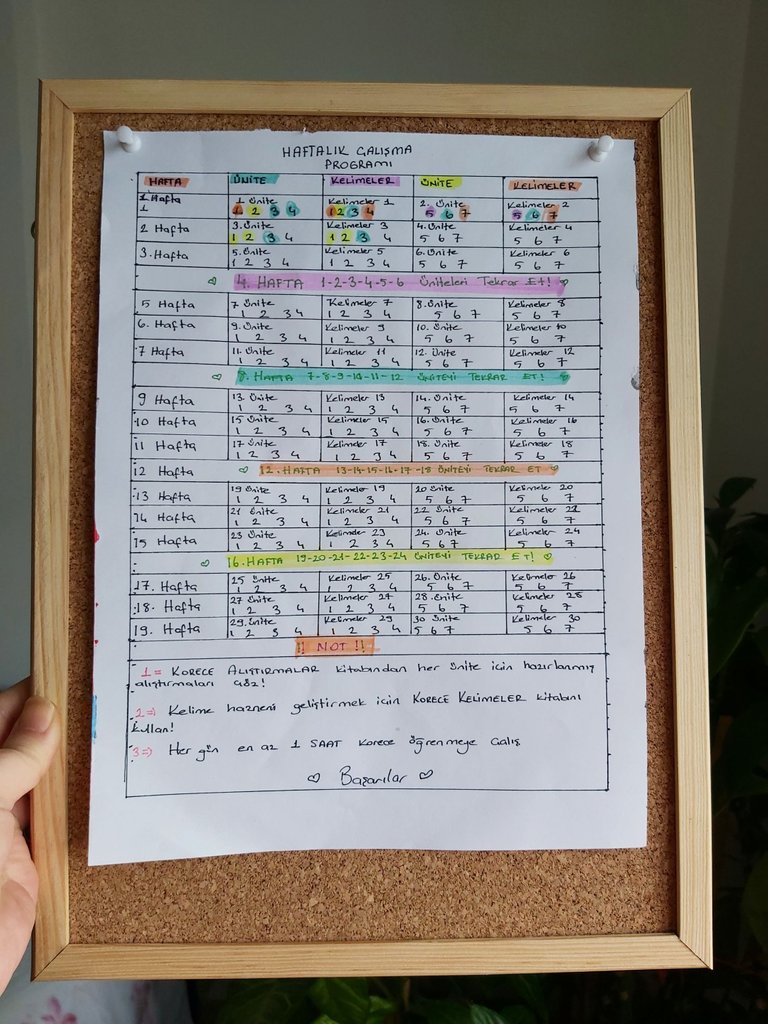 HAFTALIK ÇALIŞMA
PROGRAMI
HAFTA ÜNİTE KELİMELER ÜNİTE KELİMELER
1 Hafta 1. Ünite Kelimeler 1 2. Ünite Kelimeler 2
1 1 2 3 4 1 2 3 4 5 6 7 5 6 7
2 Hafta 3. Ünite Kelimeler 3 4. Ünite Kelimeler 4
1 2 3 4 1 2 3 4 5 6 7 5 6 7
3. Hafta 5. Ünite Kelimeler 5 6. Ünite Kelimeler 6
1 2 3 4 1 2 3 4 5 6 7 5 6 7
4. HAFTA 1-2-3-4-5-6 Üniteleri Tekrar ET!
5 Hafta 7. Ünite Kelimeler 7 8. Ünite Kelimeler 8
1 2 3 4 1 2 3 4 5 6 7 5 6 7
6. Hafta 9. Ünite Kelimeler 9 10. Ünite Kelimeler 10
1 2 3 4 1 2 3 4 5 6 7 5 6 7
7 Hafta 11. Ünite Kelimeler 11 12. Ünite Kelimeler 12
1 2 3 4 1 2 3 4 5 6 7 5 6 7
8. HAFTA 7-8-9-10-11-12 ÜNİTEYİ TEKRAR ET!
9 Hafta 13. Ünite Kelimeler 13 14. Ünite Kelimeler 14
1 2 3 4 1 2 3 4 5 6 7 5 6 7
10 Hafta 15 Ünite Kelimeler 15 16. Ünite Kelimeler 16
1 2 3 4 1 2 3 4 5 6 7 5 6 7
11 Hafta 17 Ünite Kelimeler 17 18. Ünite Kelimeler 18
1 2 3 4 1 2 3 4 5 6 7 5 6 7
12 Hafta 12. HAFTA 13-14-15-16-17-18 ÜNİTEYİ TEKRAR ET
13 Hafta 19 Ünite Kelimeler 19 20 Ünite Kelimeler 20
1 2 3 4 1 2 3 4 5 6 7 5 6 7
14 Hafta 21 Ünite Kelimeler 21 22 Ünite Kelimeler 22
1 2 3 4 1 2 3 4 5 6 7 5 6 7
15 Hafta 23 Ünite Kelimeler 23 24. Ünite Kelimeler 24
1 2 3 4 1 2 3 4 5 6 7 5 6 7
16. HAFTA 19-20-21-22-23-24 ÜNİTEYİ TEKRAR ET!
17. Hafta 25 Ünite Kelimeler 25 26. Ünite Kelimeler 26
1 2 3 4 1 2 3 4 5 6 7 5 6 7
18. Hafta 27 Ünite Kelimeler 27 28. Ünite Kelimeler 28
1 2 3 4 1 2 3 4 5 6 7 5 6 7
19. Hafta 29. Ünite Kelimeler 29 30 Ünite Kelimeler 30
1 2 3 4 1 2 3 4 5 6 7 5 6 7
!! NOT !!
1 = KORECE ALIŞTIRMALAR kitabından her Ünite için hazırlanmış
alıştırmaları çöz!
2 => Kelime hazneni geliştirmek için KORECE KELİMELER kitabını
kullan!
3 => Her gün en az 1 SAAT Korece öğrenmeye çalış
Başarılar